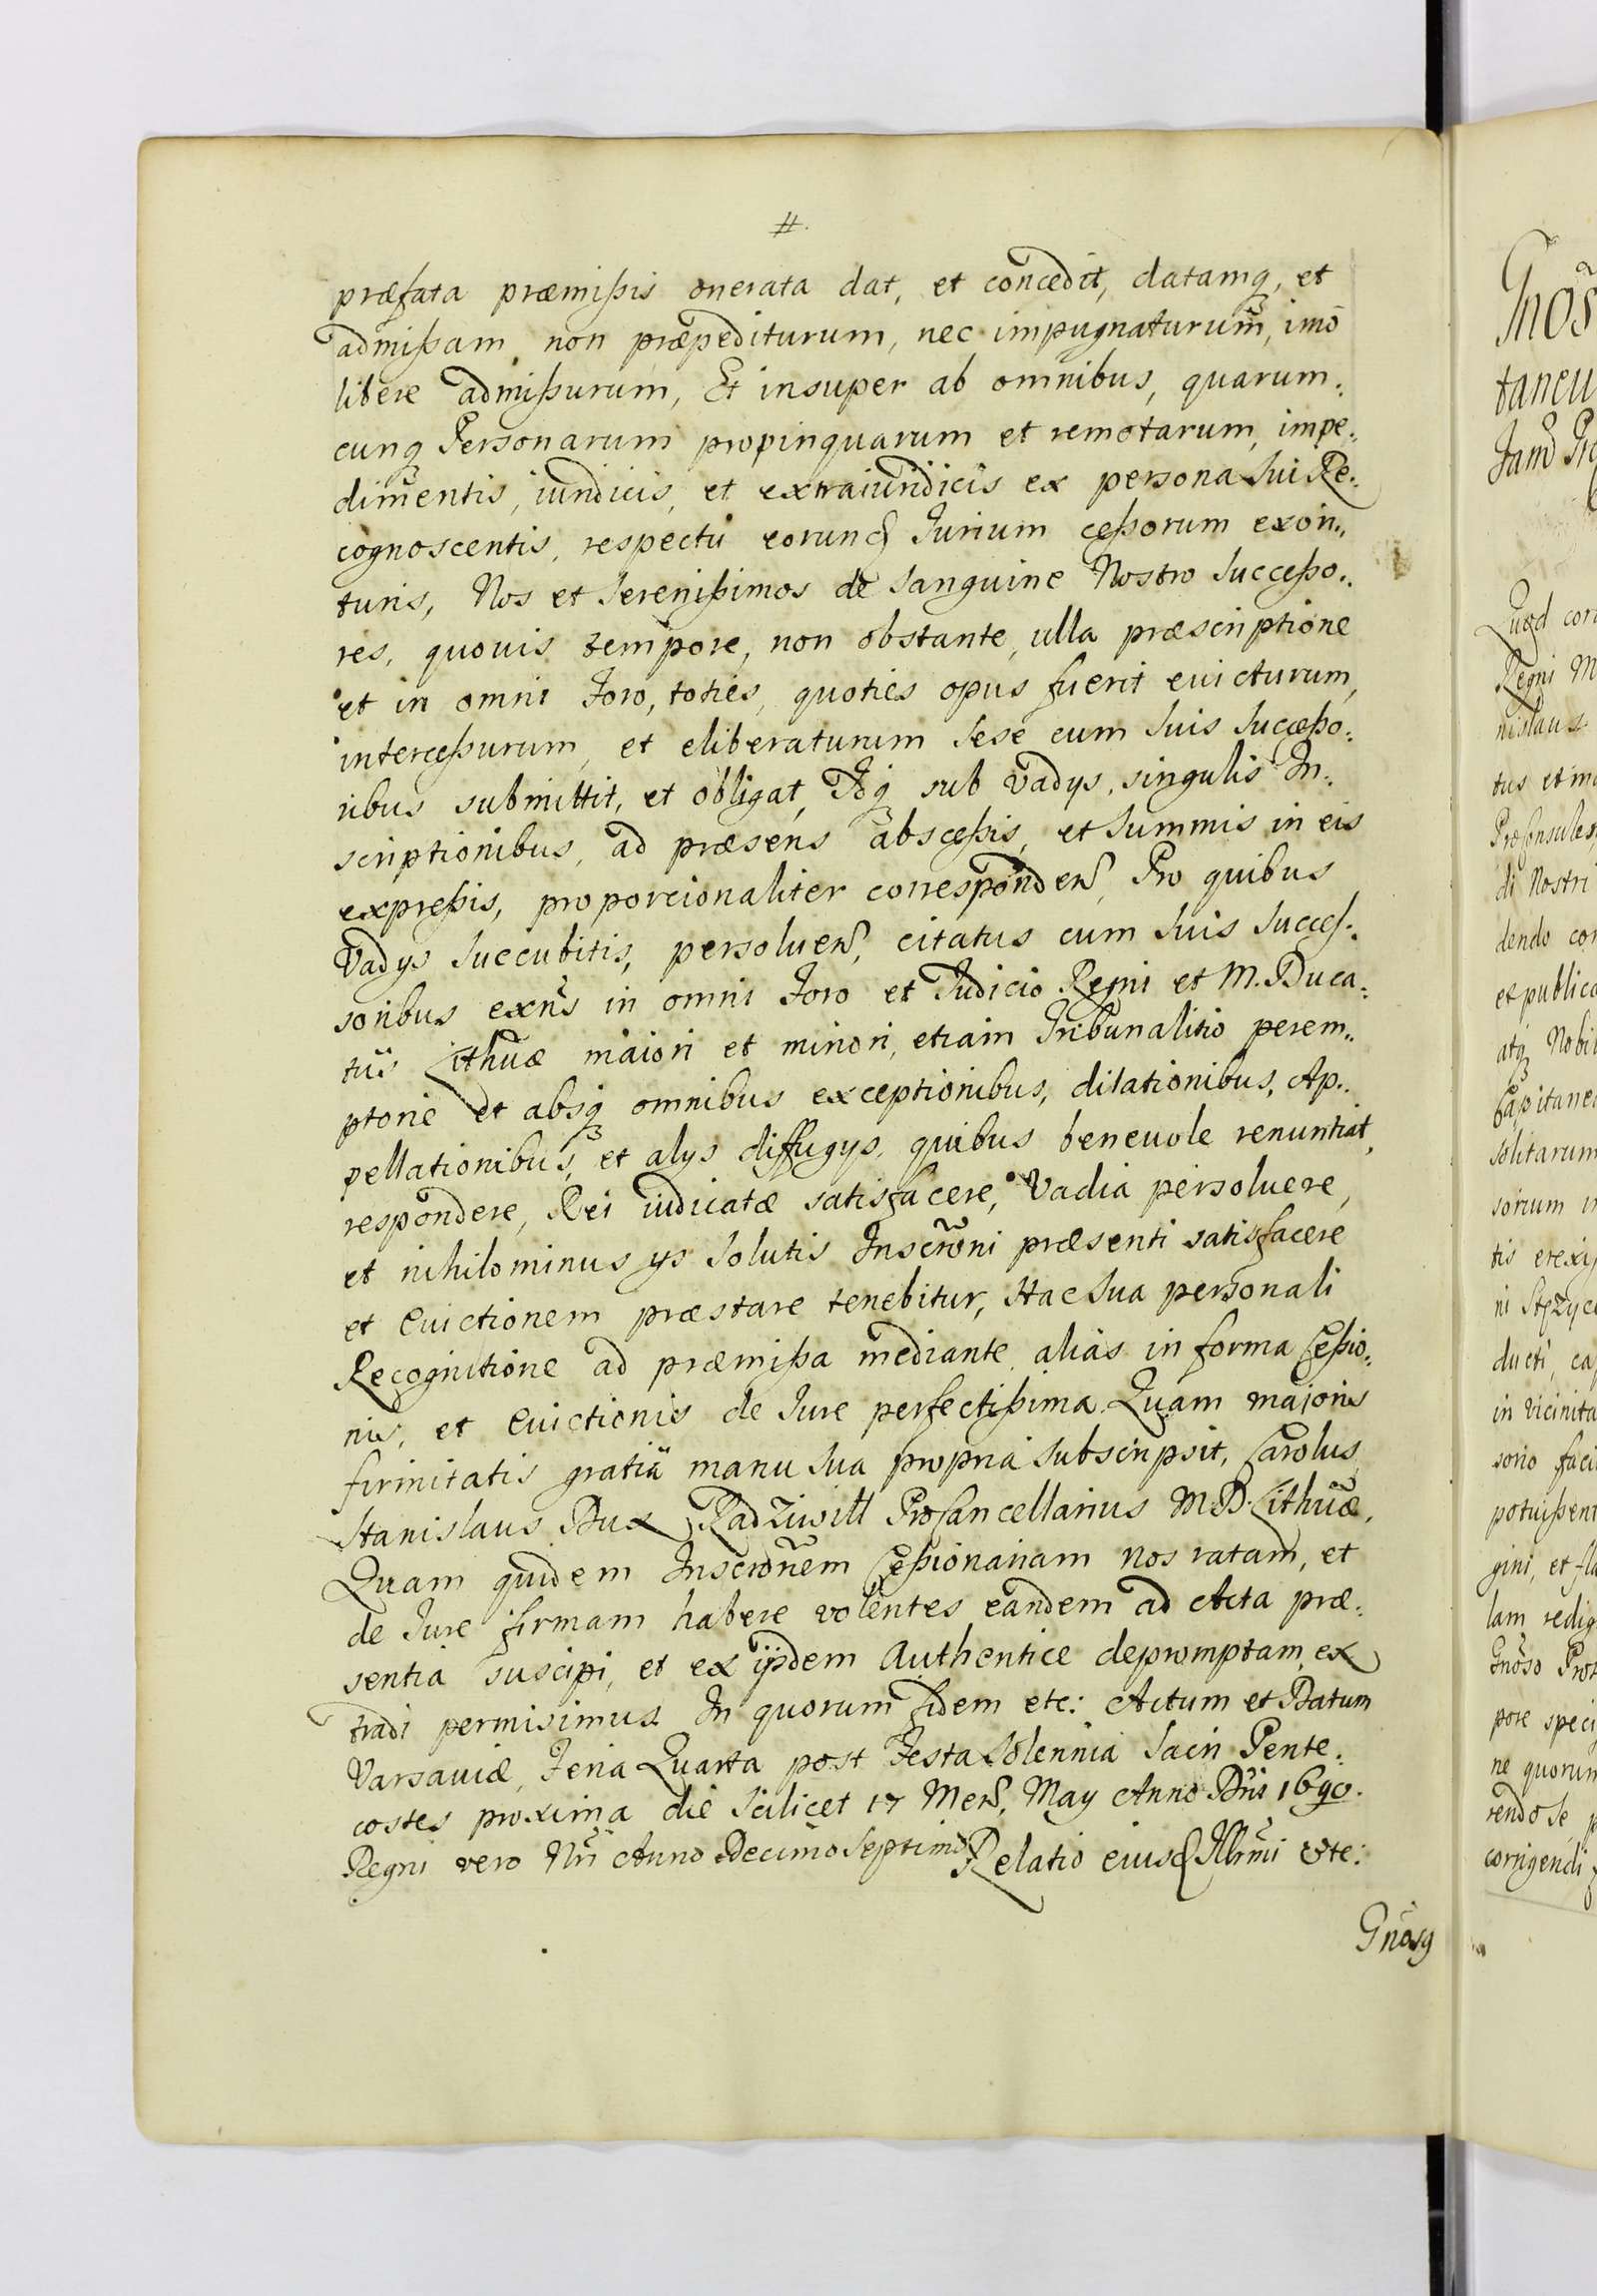 #.
præfata præmißis onerata dat, et concedit, datamq, et
admißam non præpediturum, nec impugnaturum, imo
libere admißurum, Et insuper ab omnibus, quarum:
cunq Personarum propinquarum et remotarum, impe:
dimentis, iuridicis, et extraiuridicis ex persona sui Re:
cognoscentis, respectu eorund Iurium ceßorum exori:
turis, Nos et Serenißimos de Sanguine Nostro Succeßo:
res, quouis tempore, non obstante ulla præscriptione
et in omni Foro, toties, quoties opus fuerit euicturum,
interceßurum et eliberaturum Sese cum Suis Succeßo:
ribus submittit, et obligat, Idq sub Vadys, singulis In:
scriptionibus, ad præsens absceßis, et Summis in eis
expreßis, proporcionaliter corresponden, Pro quibus
Vadys Succubitis, persoluen, citatus cum Suis Succes:
soribus exñs in omni Foro et Iudicio Regni et M. Duca:
tus Lithuæ maiori et minori, etiam Tribunalitio perem:
ptorie et absq omnibus exceptionibus, dilationibus, Ap:
pellationibus, et alys diffugys, quibus beneuole renuntiat,
respondere, Rei iudicatæ satisfacere, Vadia persoluere,
et nihilominus ys Solutis Inscrõni præsenti satisfacere
et Euictionem præstare tenebitur, Hac Sua personali
Recognitione ad præmißa mediante alias in forma Ceßio:
nis, et Euictionis de Iure perfectißima. Quam maioris
firmitatis gratia manu Sua propria Subscripsit, Carolus
Stanislaus Dux Radziwill ProCancellarius M.D. Lithuæ.
Quam quidem Inscrõnem Ceßionariam nos ratam, et
de Iure firmam habere volentes eandem ad Acta præ:
sentia suscipi, et ex ijsdem Authentice depromptam ex
tradi permisimus. In quorum fidem etc: Actum et Datum
Varsauiæ, Feria Quarta post Festa Solennia Sacri Pente:
costes proxima die Scilicet 17 Men, May Anno Dñi 1690.
Regni vero Nri Anno Decimo Septimo Relatio eiusd Illrmi &te:
Gnosq
Gnõs
taneu
Quod
Regni M
nislaus
tus et
di Nostri
dendo con
et publica
atq Nobil
Capitane
solitarum
sorium
ducti, ca
in vicinita
sorio faci
potuißent
gini, et fla
lam redig
Gnõso
pore speci
ne quorum
rendo se
corrigendi